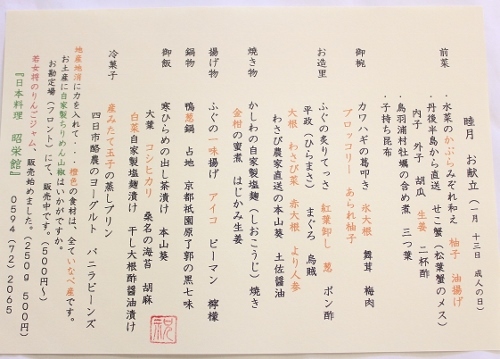 睦月 お献立 (一月 十三日 成人の日)
前菜
・水菜のかぶらみぞれ和え 柚子 油揚げ
・丹後半島から直送 せこ蟹(松葉蟹のメス)
内子 外子 胡瓜 生姜 二杯酢
・鳥羽浦村牡蠣の含め煮 三つ葉
・子持ち昆布
御椀
カワハギの葛叩き 水大根 舞茸 梅肉
ブロッコリー あられ柚子
お造里
ふぐの炙りてっさ 紅葉卸し 葱 ポン酢
平政(ひらまさ) まぐろ 烏賊
大根 わさび菜 赤大根 より人参
わさび農家直送の本山葵 土佐醤油
焼き物
かしわの自家製塩麹(しおこうじ)焼き
金柑の蜜煮 はじかみ生姜
揚げ物
ふぐの一味揚げ アイコ ピーマン 檸檬
鍋物
鴨葱鍋 占地 京都祇園原了郭の黒七味
御飯
寒ひらめの出し茶漬け 本山葵
大葉 コシヒカリ 桑名の海苔 胡麻
白菜自家製塩麹漬け 干し大根酢醤油漬け
冷菓子
産みたて玉子の蒸しプリン
四日市酪農のヨーグルト バニラビーンズ
地産地消に力を入れて・・橙色の食材は、全ていなべ産です。
お土産に自家製ちりめん山椒はいかがですか。
お勘定場(フロント)にて、販売中です。(500円〜)
若女将のりんごジャム、販売始めました。(250g 500円)
『日本料理 昭栄館』 0594(72)2065